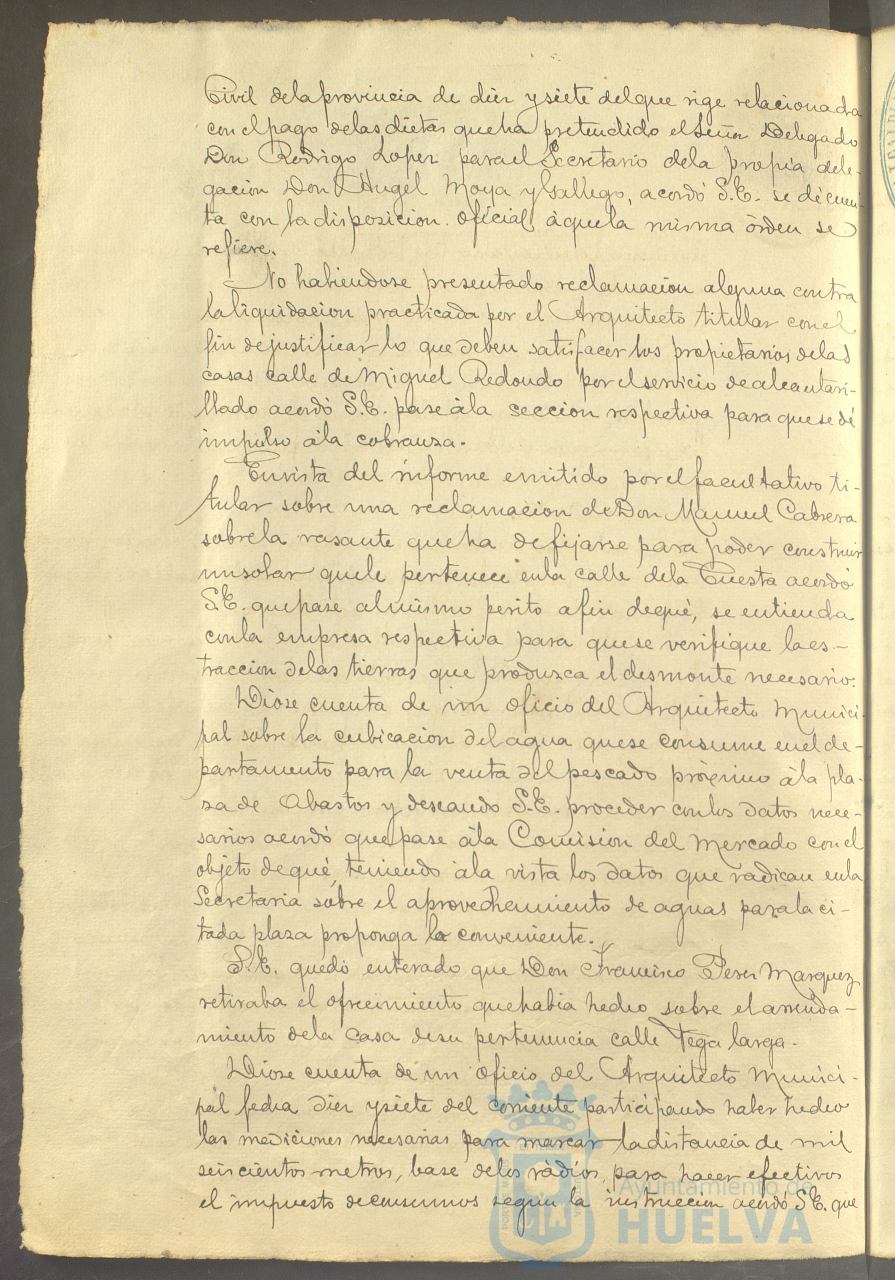 Civil dela provincia de diez y siete del que rige relacionada
con el pago delas dietas que ha pretendido el Señor Delegado
Don Rodrigo Lopez para el Secretario dela propia dele-
gacion Don Angel Moya y Gallego, acordó S.E. se dé cuen-
ta con la disposicion oficial à que la misma òrden se
refiere.
No habiendose presentado reclamacion alguna contra
la liquidacion practicada por el Arquitecto titular con el
fin de justificar lo que deben satisfacer los propietarios delas
casas calle de Miguel Redondo por el servicio de alcantari-
llado acordó S.E. pase àla seccion respectiva para que se dé
impulso àla cobranza.
En vista del informe emitido por el facultativo ti-
tular sobre una reclamacion de Don Manuel Cabrera
sobre la rasante que ha de fijarse para poder construir
un solar que le pertenece en la calle dela Cuesta acordó
S.E. que pase al mismo perito a fin de qué, se entienda
con la empresa respectiva para que se verifique la es-
traccion delas tierras que produzca el desmonte necesario.
Diose cuenta de un oficio del Arquitecto Munici-
pal sobre la cubicacion del agua que se consume en el de-
partamento para la venta del pescado pròximo àla pla-
za de Abastos y deseando S.E. proceder con los datos nece-
sarios acordó que pase àla Comision del Mercado con el
objeto de qué, teniendo àla vista los datos que radican en la
Secretaria sobre el aprovechamiento de aguas para la ci-
tada plaza proponga lo conveniente.
S.E. quedó enterado que Don Francisco Perez Marquez
retiraba el ofrecimiento que habia hecho sobre el arrenda-
miento dela casa de su pertenencia calle Vega larga.
Diose cuenta de un oficio del Arquitecto Munici-
pal fecha diez y siete del corriente participando haber hecho
las mediciones necesarias para marcar la distancia de mil
seiscientos metros, base delos ràdios, para hacer efectivos
el impuesto de consumos segun la instruccion acordó S.E. que
Ayuntamiento de
HUELVA